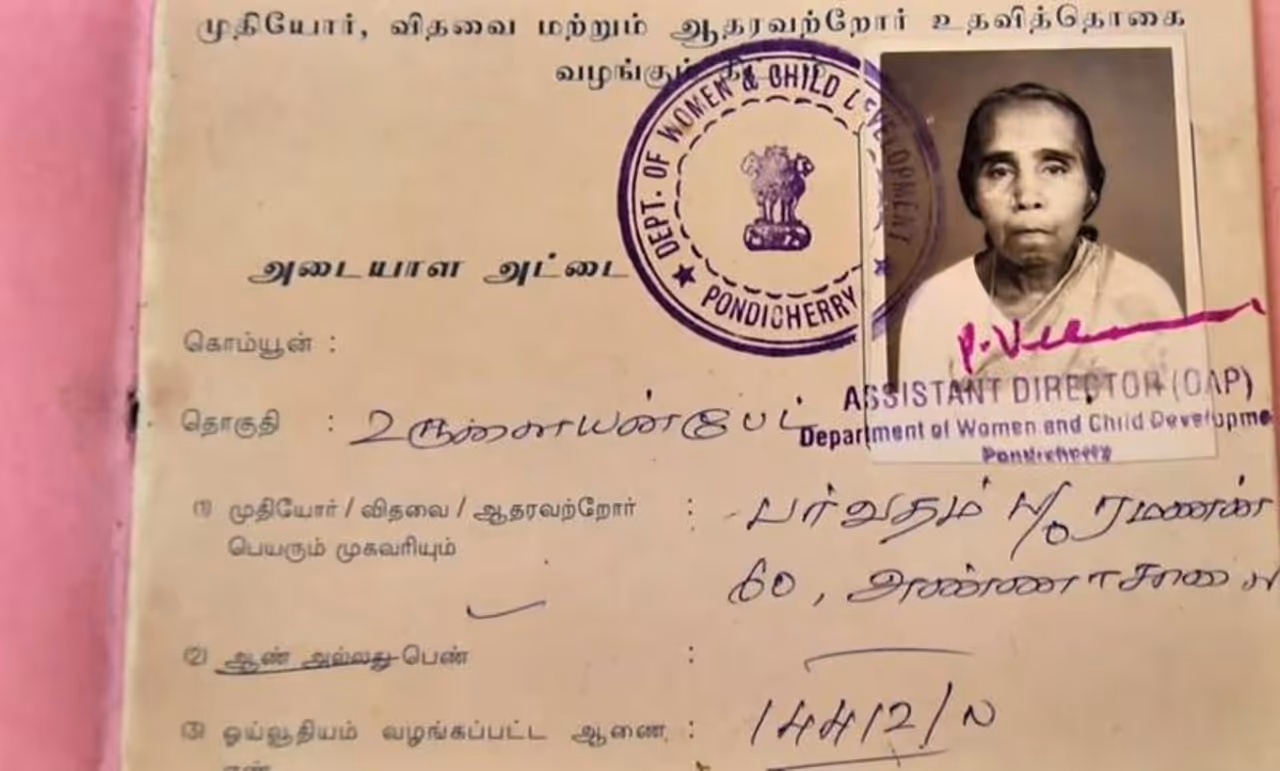 முதியோர், விதவை மற்றும் ஆதரவற்றோர் உதவித்தொகை
வழங்கும் திட்டம்
DEPT. OF WOMEN & CHILD DEVELOPMENT
PONDICHERRY
அடையாள அட்டை
கொம்யூன் :
P.V
ASSISTANT DIRECTOR (OAP)
தொகுதி : உருளையன்பேட்
Department of Women and Child Developme
Pondicherry
(1) முதியோர் / விதவை / ஆதரவற்றோர் : பர்வதம் W/o ரமணன்
பெயரும் முகவரியும்
60, அண்ணாசாலை
(2) ஆண் அல்லது பெண் :
(3) ஓய்வூதியம் வழங்கப்பட்ட ஆணை : 14412/N
எண்